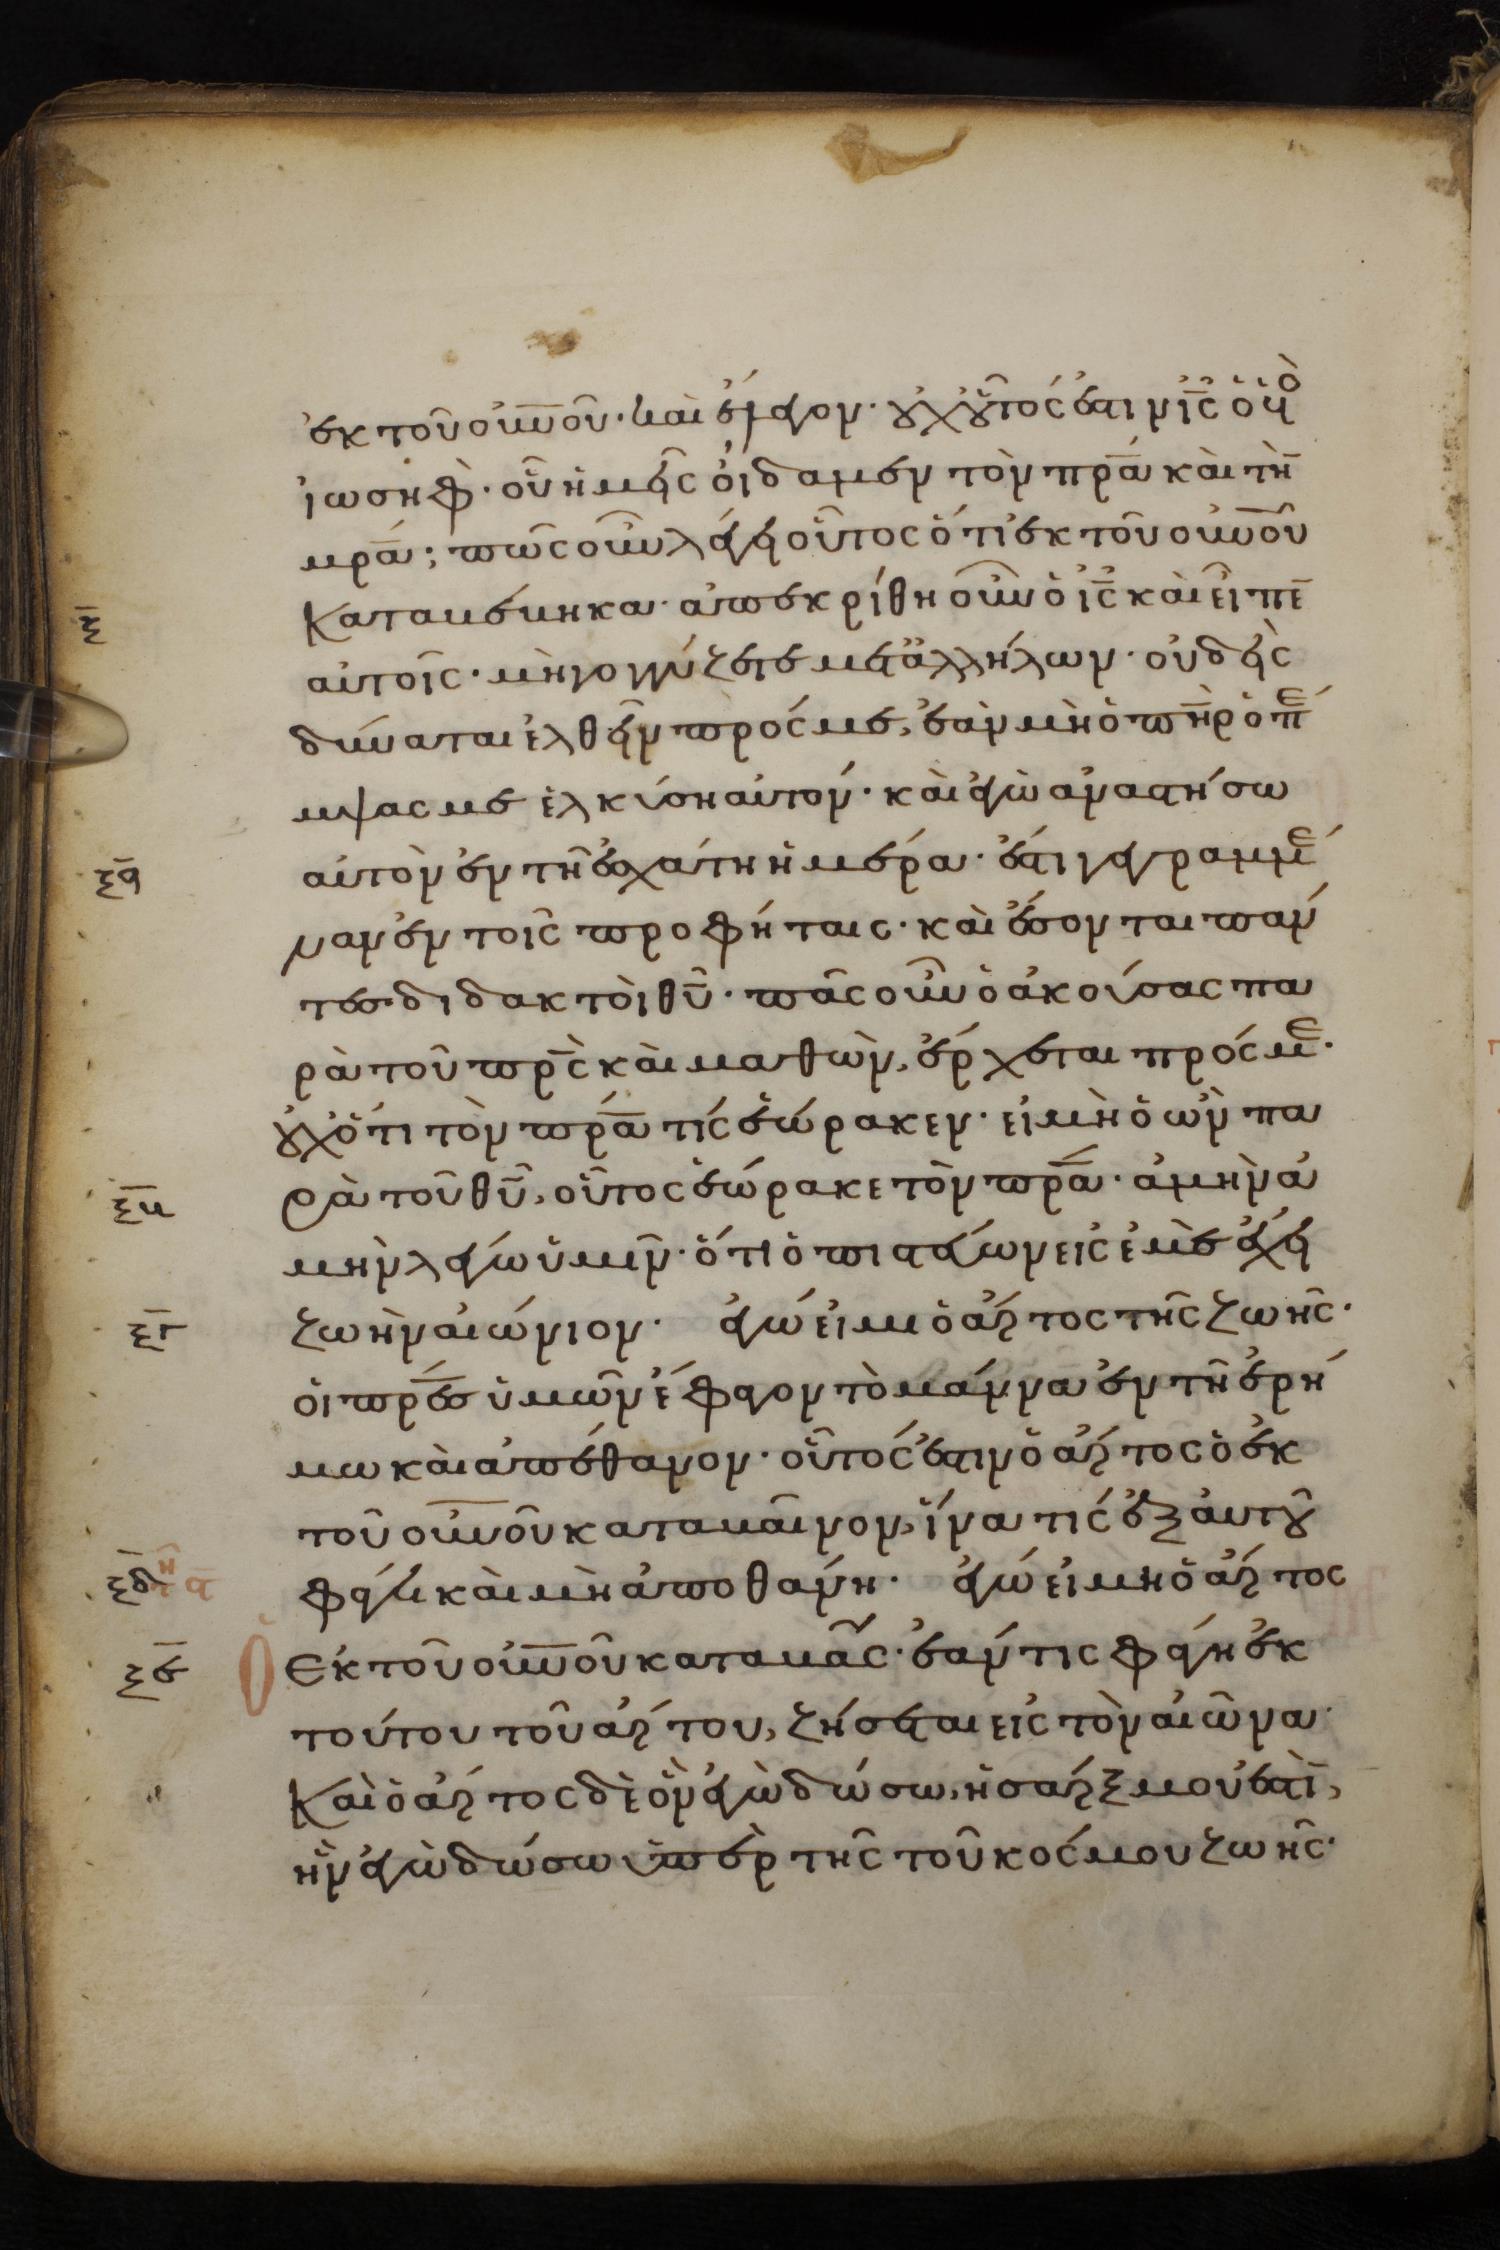 ἐκ τοῦ οὐνοῦ· καὶ ἔλεγον· οὐχ οὗτός ἐστιν ἰς ὁ υἱὸ
ἰωσήφ· οὗ ἡμεῖς οἴδαμεν τὸν πρα καὶ τὴν
μρα; πῶς οὖν λέγει οὗτος ὅτι ἐκ τοῦ οὐνοῦ
ξ
Καταβέβηκα· ἀπεκρίθη οὖν ὁ ἰς καὶ εἶπεν
αὐτοῖς· μὴ γογγύζετε μετ' ἀλλήλων· οὐδεὶς
δύναται ἐλθεῖν πρός με, ἐὰν μὴ ὁ πηρ ὁ πέ
μψας με ἑλκύση αὐτόν· καὶ ἐγὼ ἀναστήσω
ξα
αὐτὸν ἐν τῆ ἐσχάτη ἡμέρα· ἔστι γεγραμμέ
νον ἐν τοῖς προφήταις· καὶ ἔσονται πάν
τες διδακτοὶ θυ· πᾶς οὖν ὁ ἀκούσας πα
ρὰ τοῦ πρς καὶ μαθὼν, ἔρχεται πρός με·
οὐχ ὅτι τὸν πρα τίς ἑώρακεν· εἰ μὴ ὁ ὢν πα
ξβ
ρὰ τοῦ θυ, οὗτος ἑώρακε τὸν πρα· ἀμὴν ἀ
μὴν λέγω ὑμῖν· ὅτι ὁ πιστεύων εἰς ἐμὲ ἔχει
ξγ
ζωὴν αἰώνιον· ἐγώ εἰμι ὁ ἄρτος τῆς ζωῆς·
οἱ πρες ὑμῶν ἔφαγον τὸ μάννα ἐν τῆ ἐρή
μω καὶ ἀπέθανον· οὗτός ἐστιν ὁ ἄρτος ὁ ἐκ
τοῦ οὐνοῦ καταβαῖνον, ἵνα τίς ἐξ αὐτοῦ
ξδ
φάγη καὶ μὴ ἀποθάνη· ἐγώ εἰμι ὁ ἄρτος
ξε
ὁ ἐκ τοῦ οὐνοῦ καταβὰς· ἐάν τις φάγη ἐκ
τούτου τοῦ ἄρτου, ζήσεται εἰς τὸν αἰῶνα·
Καὶ ὁ ἄρτος δὲ ὃν ἐγὼ δώσω, ἡ σάρξ μου ἐστὶν,
ἣν ἐγὼ δώσω ὑπὲρ τῆς τοῦ κόσμου ζωῆς·